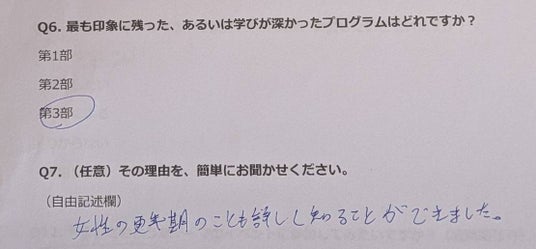 Q6. 最も印象に残った、あるいは学びが深かったプログラムはどれですか？
第1部
第2部
第3部
Q7. （任意）その理由を、簡単にお聞かせください。
（自由記述欄）
女性の更年期のことも詳しく知ることができました。